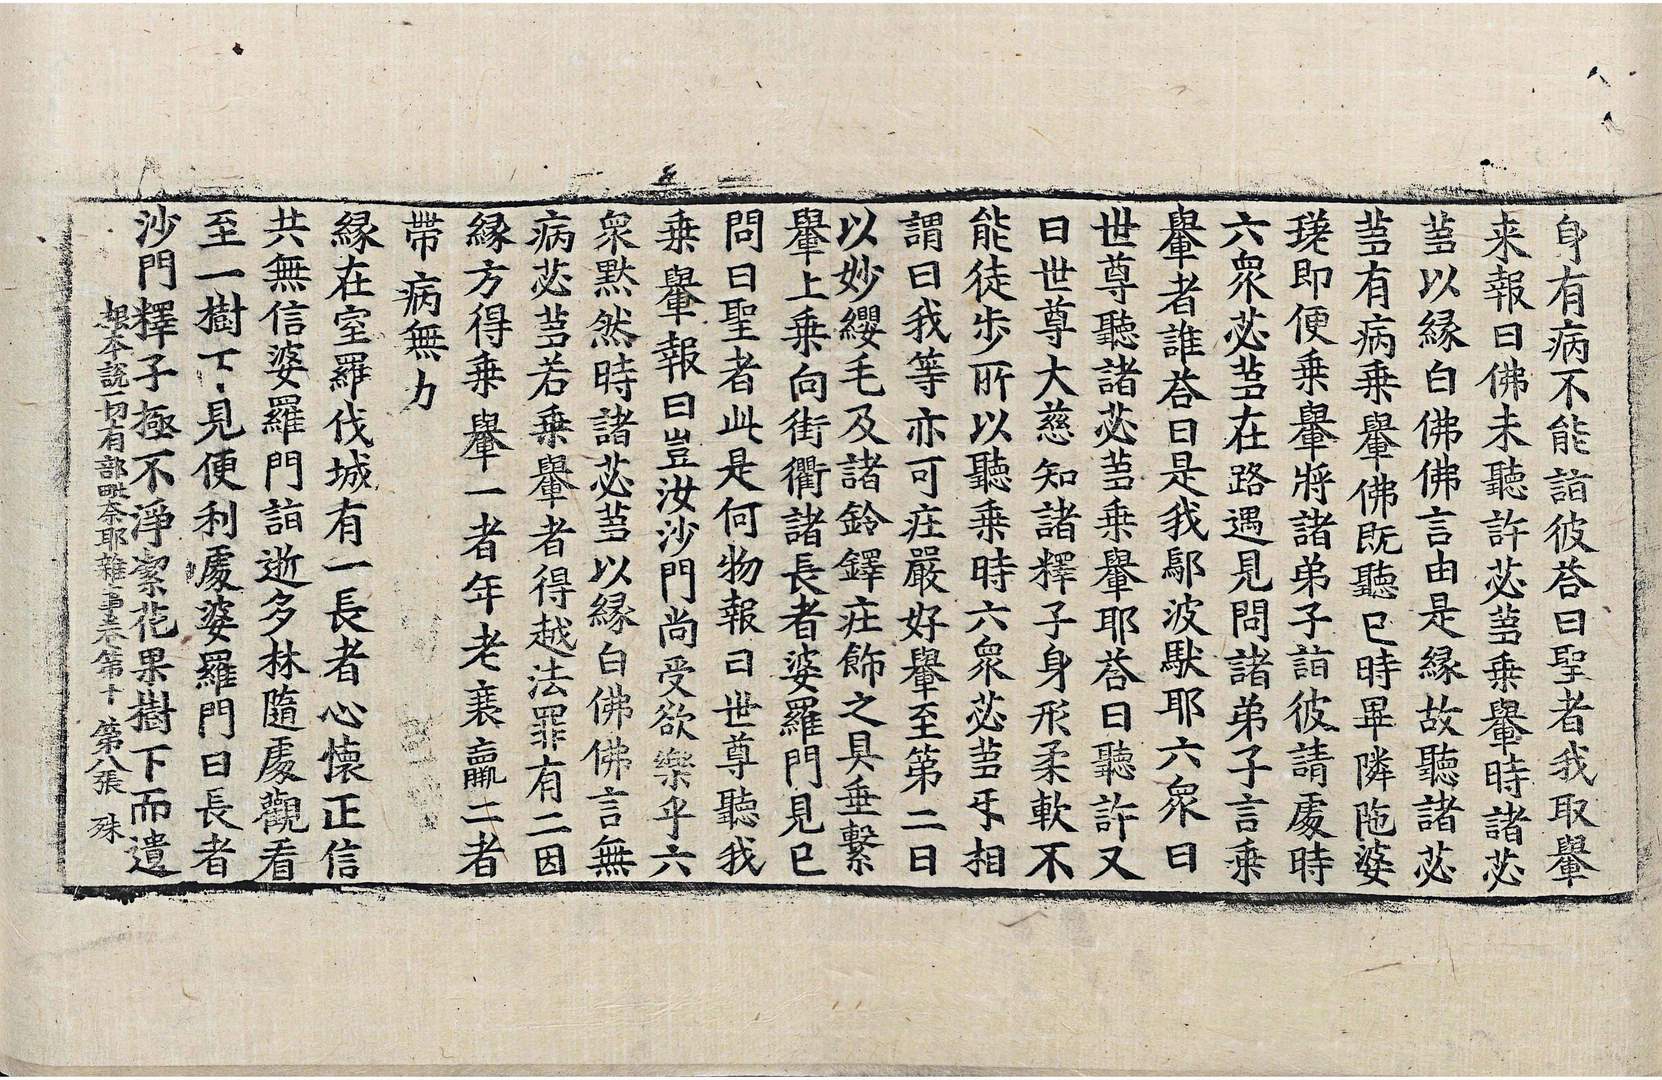 身有病不能詣彼荅曰聖者我取轝
来報曰佛未聽許苾蒭乗轝時諸苾
蒭以縁白佛佛言由是縁故聽諸苾
蒭有病乗轝佛既聽已時畢隣陁婆
蹉即便乗轝將諸弟子詣彼請處時
六衆苾蒭在路遇見問諸弟子言乗
轝者誰荅曰是我鄔波馱耶六衆曰
世尊聽諸苾蒭乗轝耶荅曰聽許又
曰世尊大慈知諸釋子身形柔軟不
能徒步所以聽乗時六衆苾蒭㸦相
謂曰我等亦可庄嚴好轝至第二日
以妙纓毛及諸鈴鐸庄飾之具垂繫
轝上乗向街衢諸長者婆羅門見已
問曰聖者此是何物報曰世尊聽我
乗轝報曰豈汝沙門尚受欲樂乎六
衆黙然時諸苾蒭以縁白佛佛言無
病苾蒭若乗轝者得越法罪有二因
縁方得乗轝一者年老衰羸二者
帶病無力
縁在室羅伐城有一長者心懐正信
共無信婆羅門詣逝多林隨處觀看
至一樹下見便利處婆羅門曰長者
沙門釋子極不淨潔花果樹下而遺
根本說一切有部毗奈耶雜事卷第十 第八張 殊